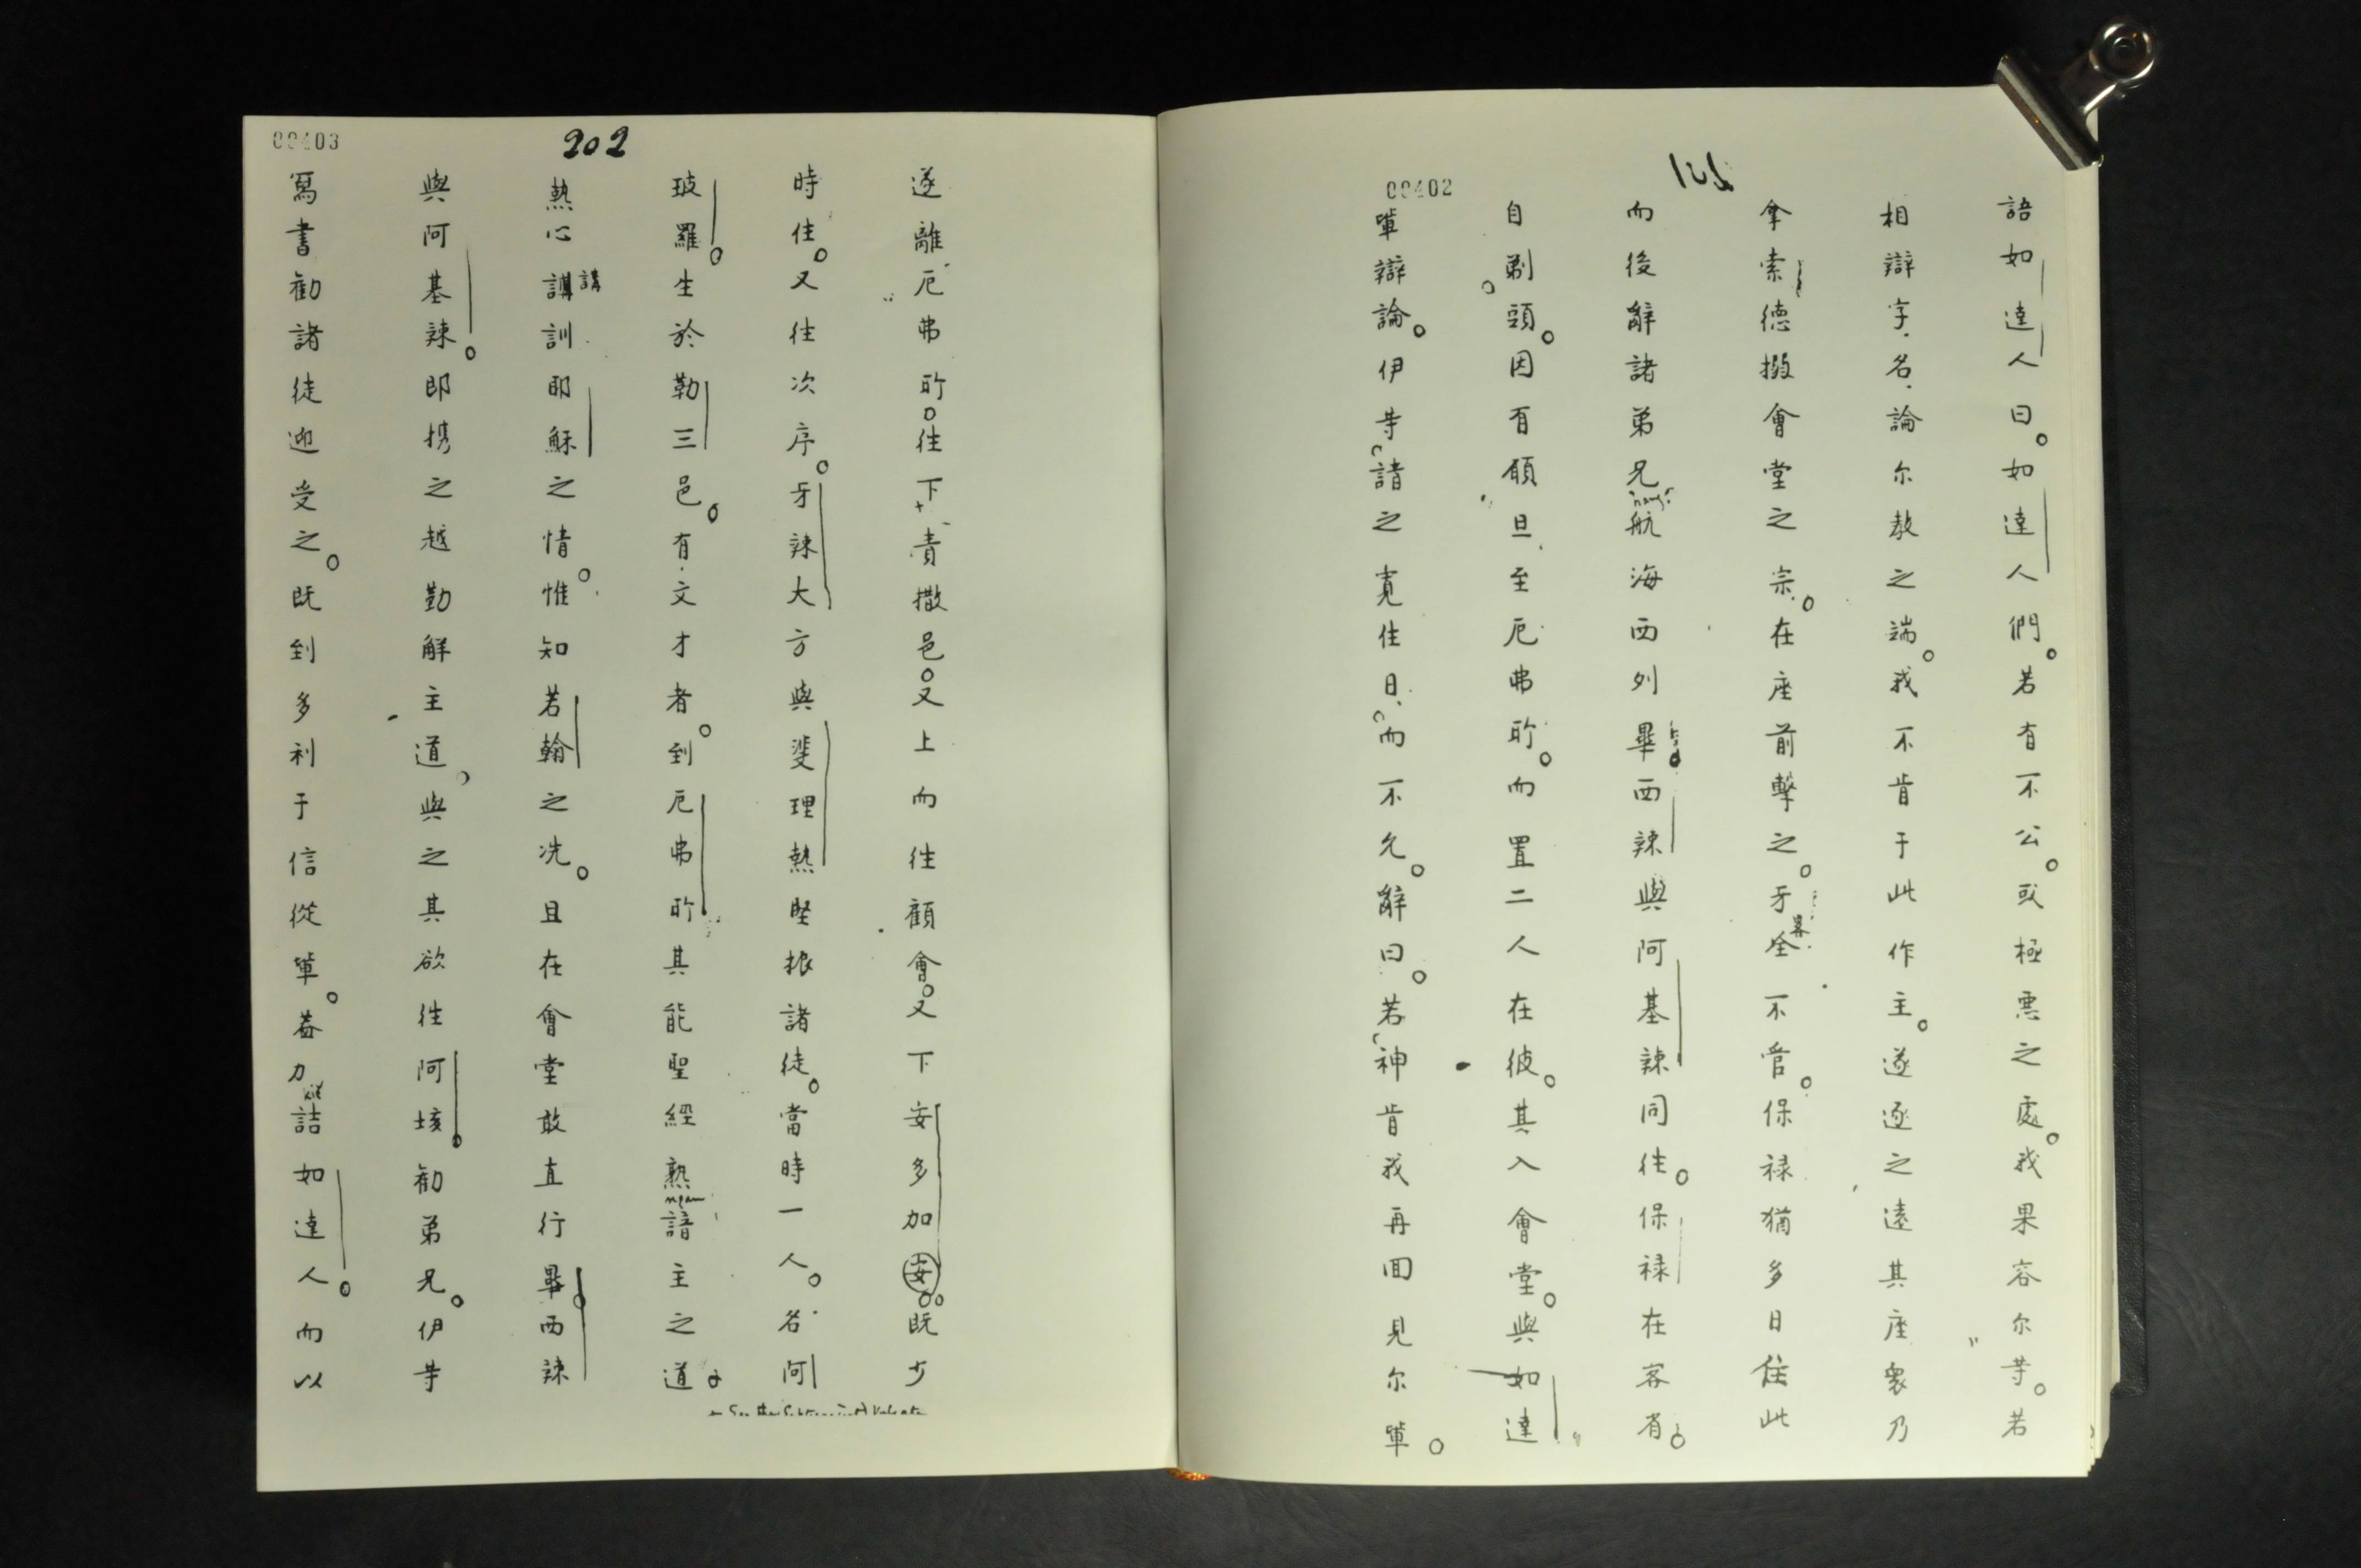 00402
語如達人曰。如達人們。若有不公。或極悪之處。我果容尔等。若
相辯字名論尔教之端。我不肯于此作主。遂逐之遠其座衆乃
拿索德撥會堂之宗。在座前擊之。牙全不管。保禄猶多日住此
而後辭諸弟兄航海西列畢。西辣與阿基辣同往。保禄在客省。
自剃頭。因有願旦至厄弗所。而置二人在彼。其入會堂。與如達
軰辯論。伊等請之寬住日而不允。辭曰。若神肯我再回見尔軰。
00403
202
遂離厄弗所。往下責撒邑。又上而往顧會。又下安多加安。既少
時住。又往次序。牙辣大方與斐理熱堅振諸徒。當時一人。名阿
玻羅。生於勒三邑。有文才者。到厄弗所其能聖經熟諳主之道
熱心講訓耶穌之情。惟知若翰之洗。且在會堂敢直行畢。西辣
講
與阿基辣。即携之越勤解主道。與之其欲往阿垓。勸弟兄。伊等
寫書勸諸徒迎受之。既到多利于信從軰。葢力詰如達人。而以